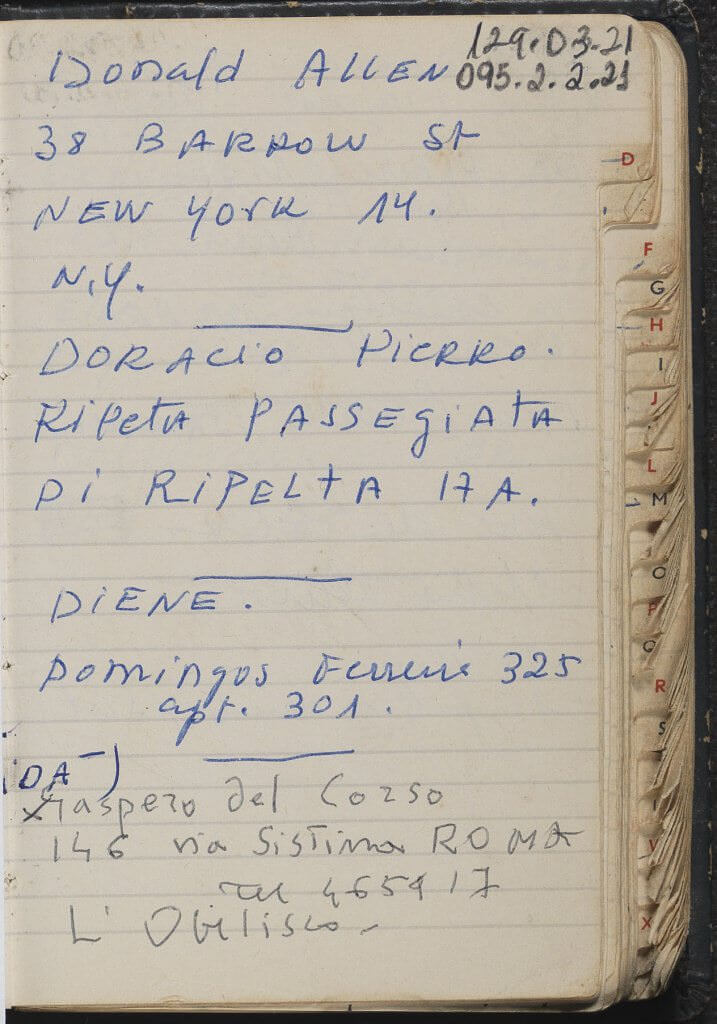 129.03.21
095.2.2.21
Donald ALLEN
38 BARROW St
NEW YORK 14.
N.Y.
DORACIO PIERRO.
RIPetA PASSEGiATA
Di RiPELtA 17A.
DiENE.
Domingos Ferreira 325
apt. 301.
iDA-)
Gaspero del Corso
146 via Sistina ROMA
Tel 465917
L'Obelisco-
D
F
G
H
I
J
L
M
O
P
Q
R
S
V
X